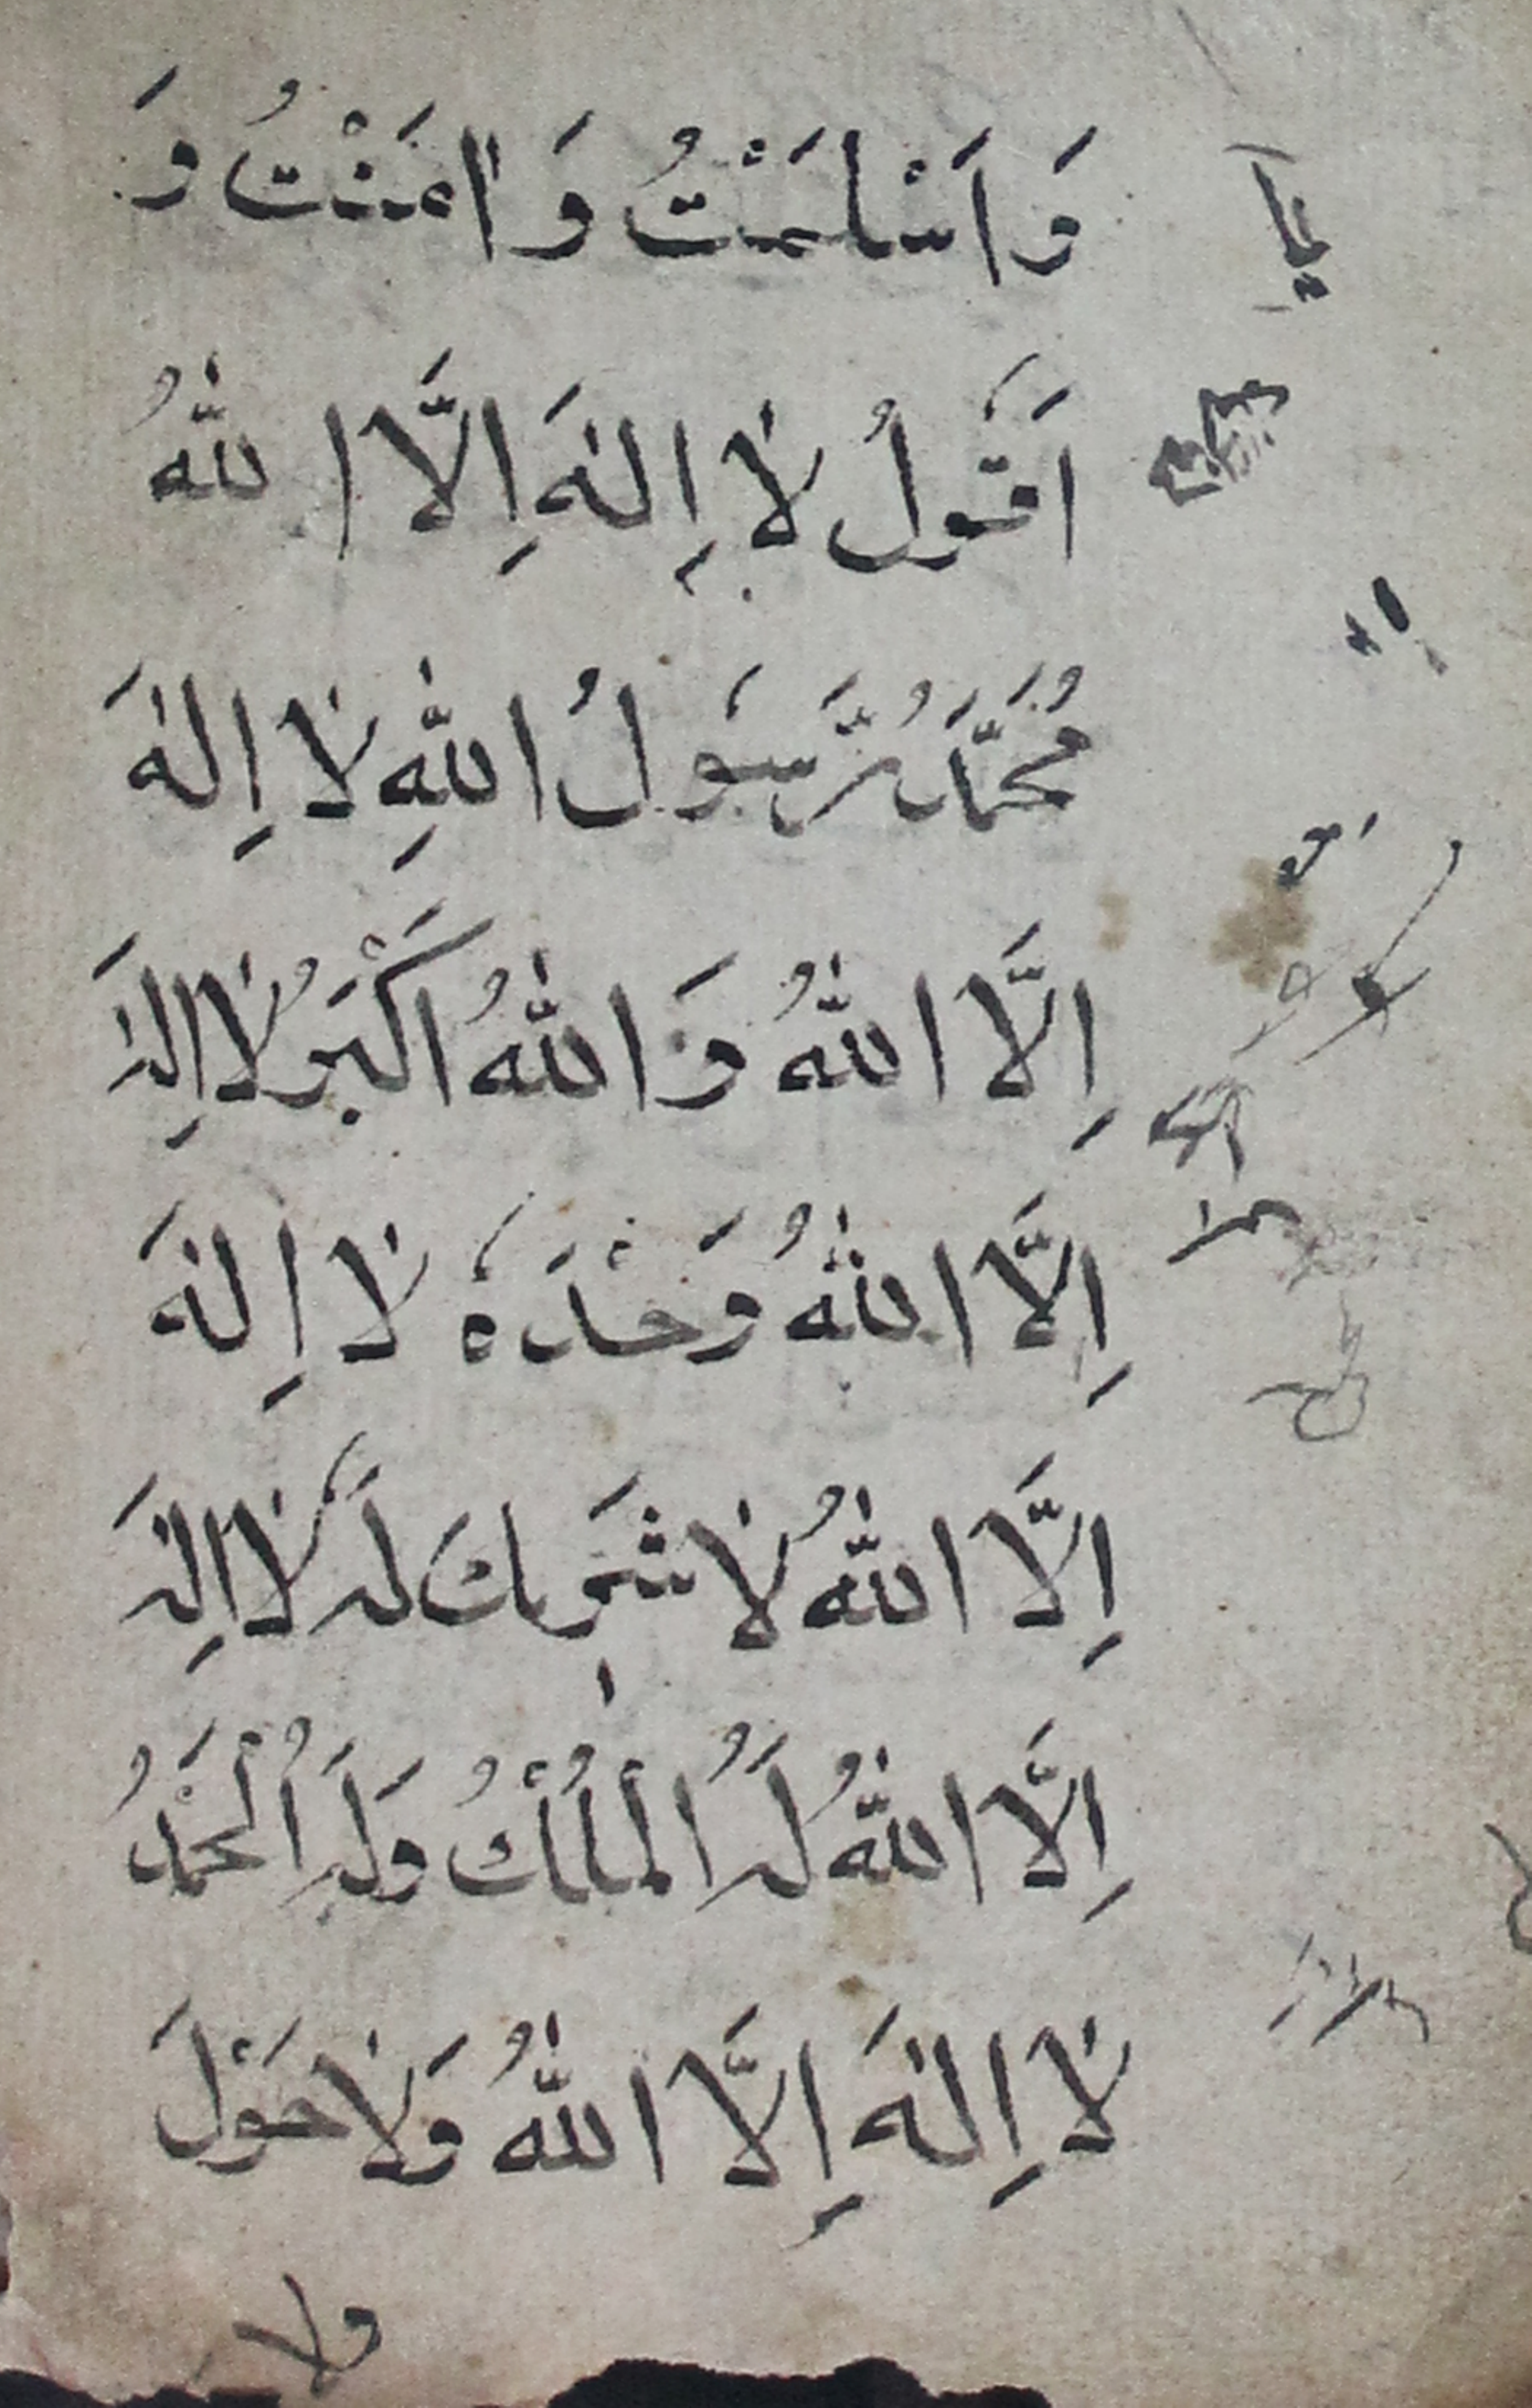 وَاَسْلَمْتُ وَاٰمَنْتُ وَ
اَقُوْلُ لَا اِلٰهَ اِلَّا اللّٰهُ
مُحَمَّدٌ رَّسُوْلُ اللّٰهِ لَا اِلٰهَ
اِلَّا اللّٰهُ وَاللّٰهُ اَكْبَرُ لَا اِلٰهَ
اِلَّا اللّٰهُ وَحْدَهٗ لَا اِلٰهَ
اِلَّا اللّٰهُ لَا شَرِيكَ لَهٗ لَا اِلٰهَ
اِلَّا اللّٰهُ لَهُ الْمُلْكُ وَلَهُ الْحَمْدُ
لَا اِلٰهَ اِلَّا اللّٰهُ وَلَا حَوْلَ
ولا